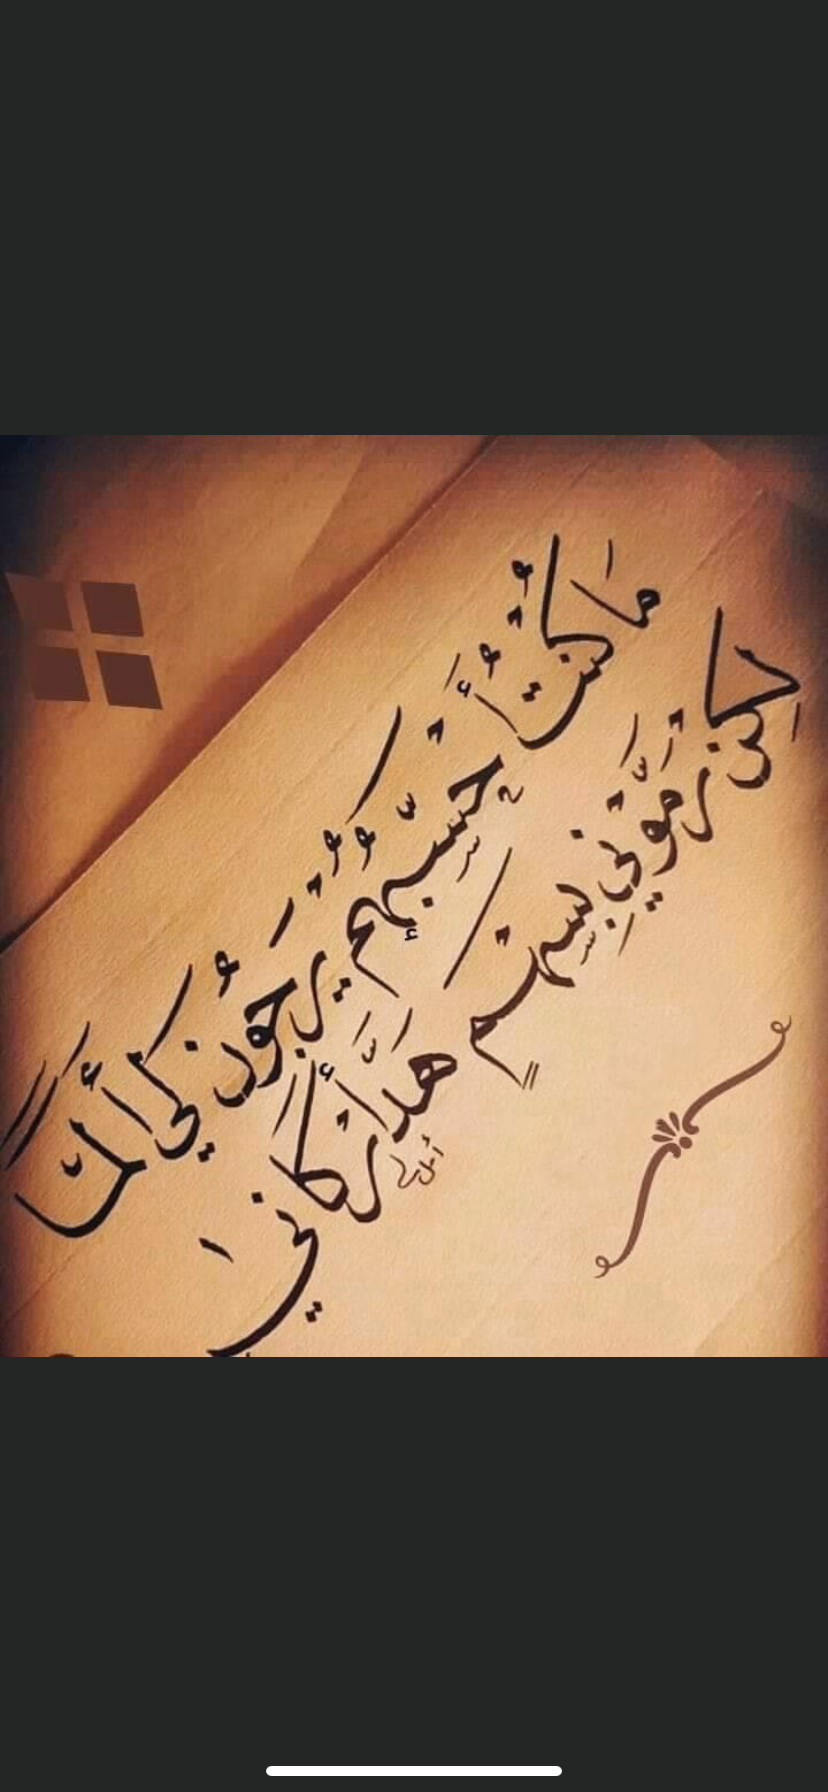 مَا كُنْتُ أَحْسِبُهُمْ يَرْجُونَ لِي أَلَمًا
لكِنْ رَمَوْنِي بِسَهْمٍ هَدَّ أَرْكَانِي
أمل